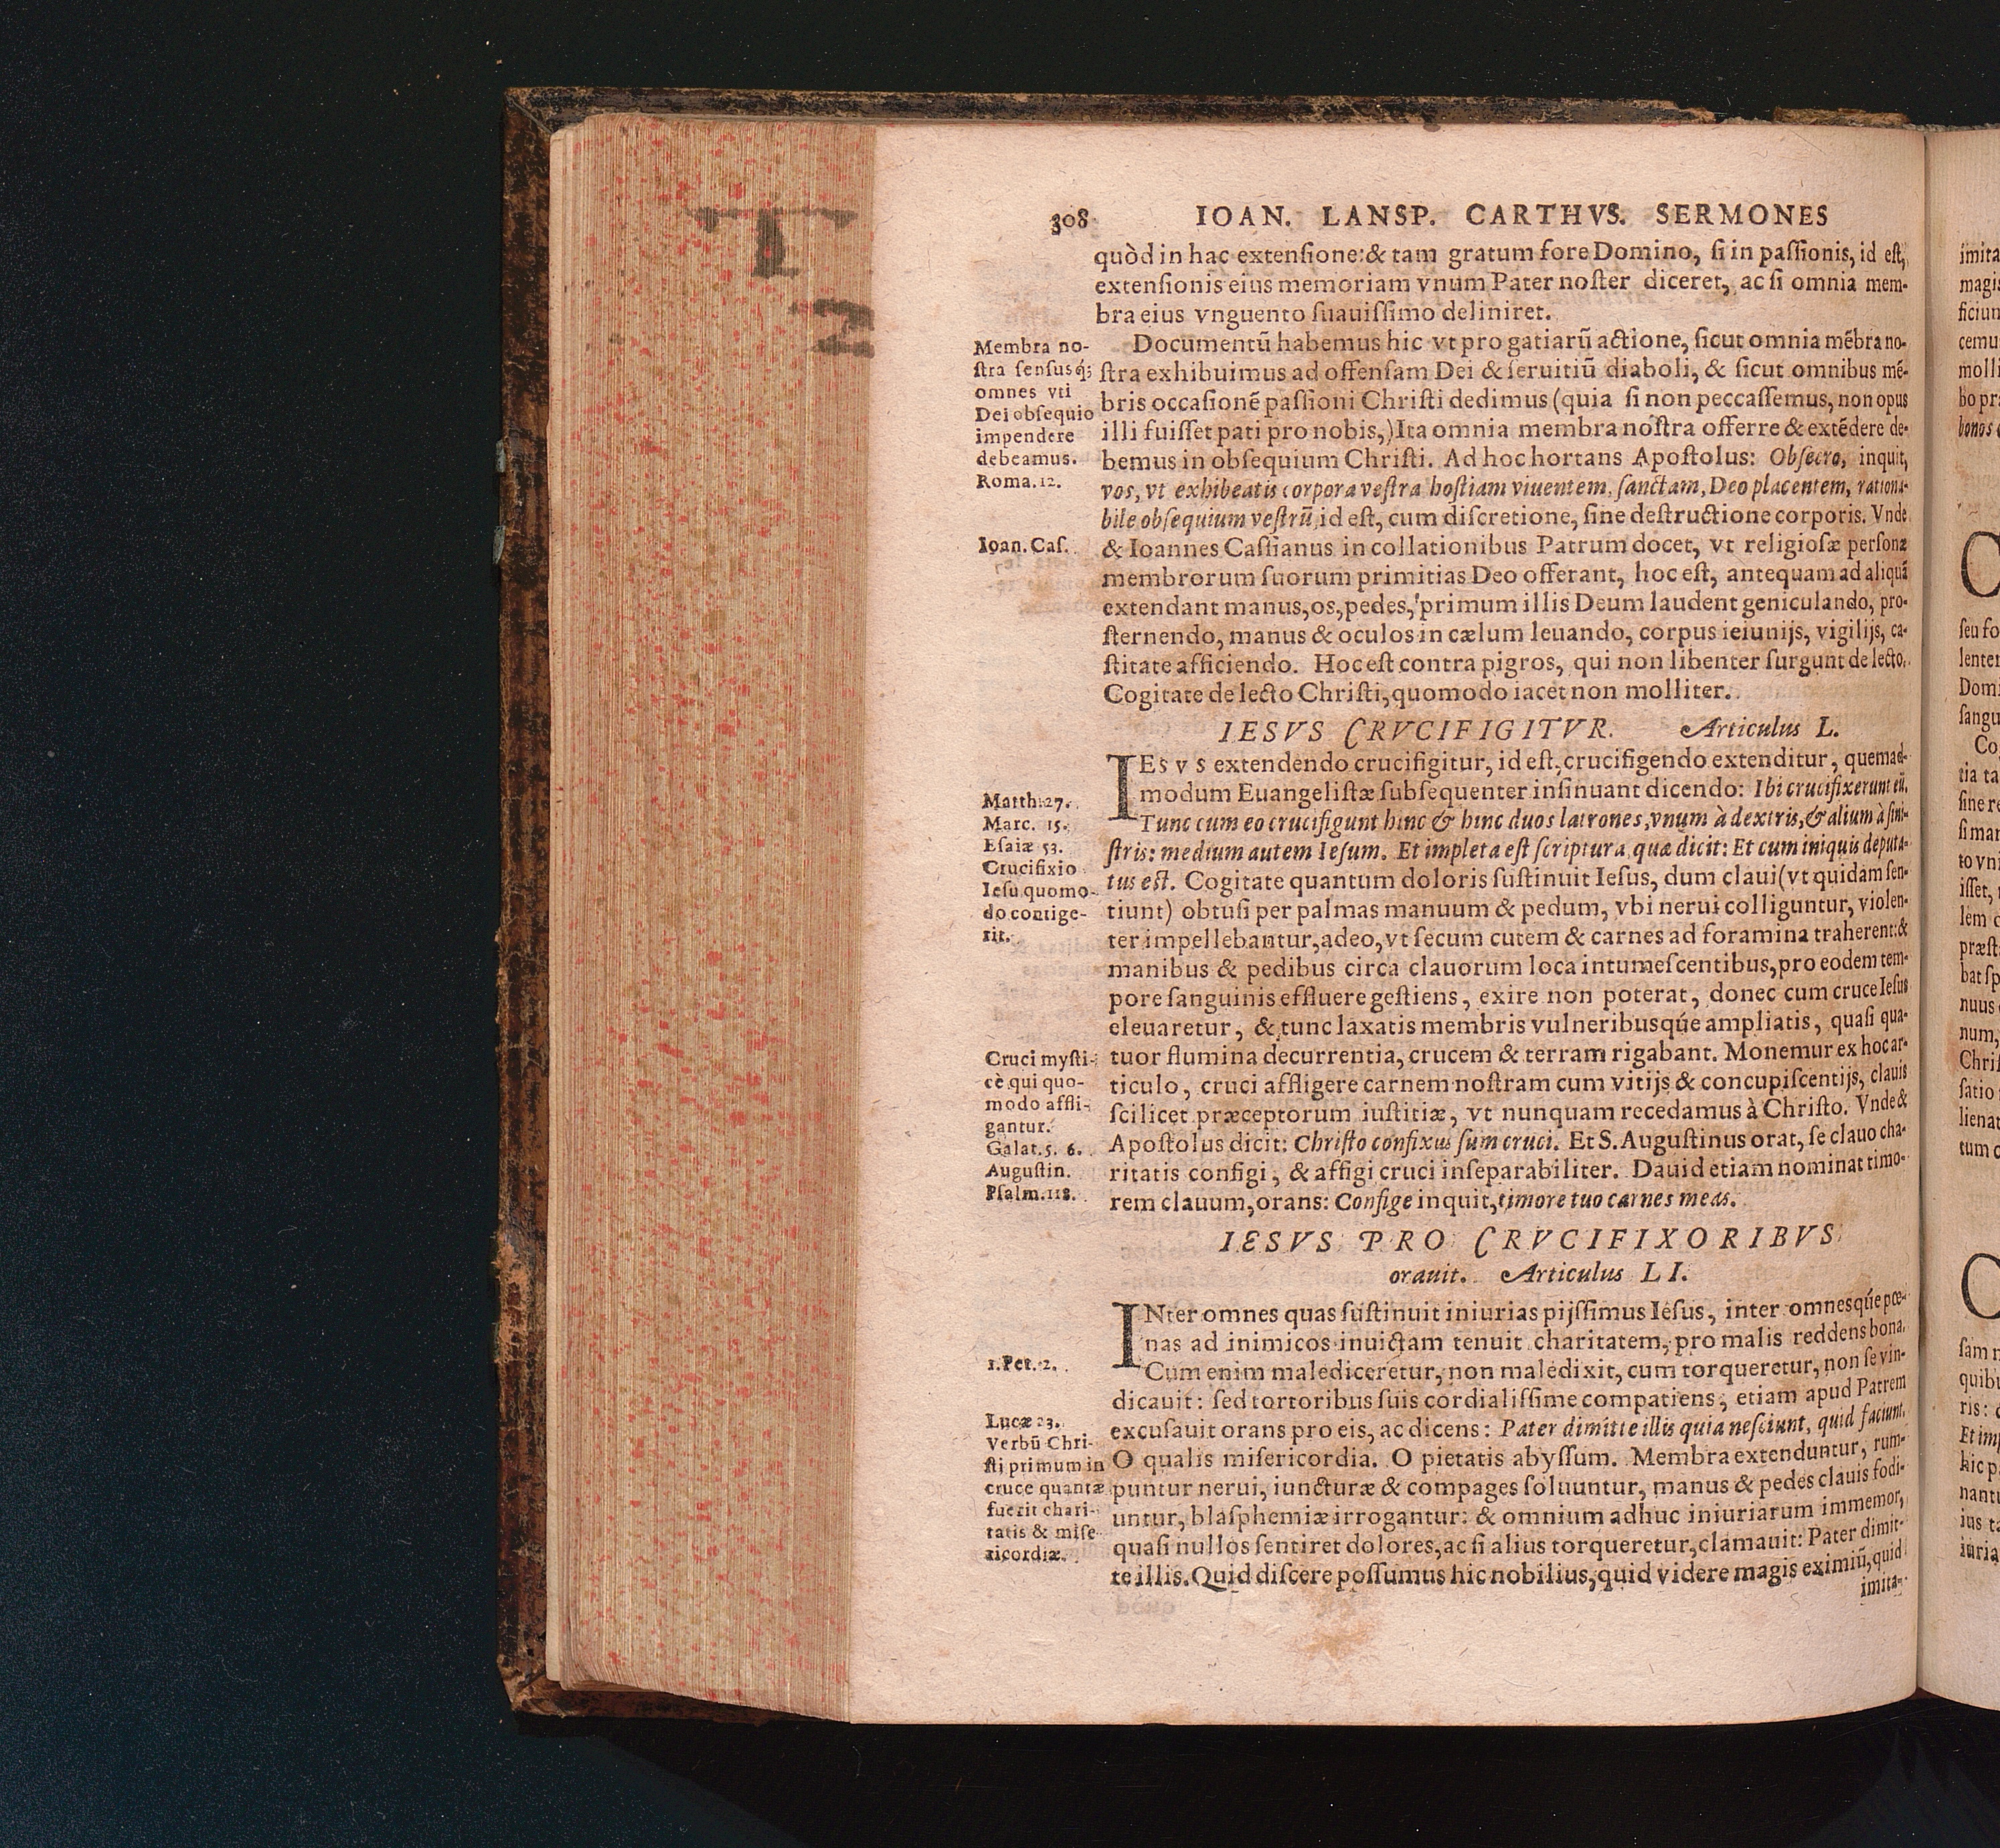 T
2
308 IOAN. LANSP. CARTHVS. SERMONES
quòd in hac extenſione:& tam gratum fore Domino, ſi in paſſionis, id eſt,
extenſionis eius memoriam vnum Pater noſter diceret, ac ſi omnia mem-
bra eius vnguento ſuauiſſimo deliniret.
Documentū habemus hic vt pro gatiarū actione, ſicut omnia mēbra no-
ſtra exhibuimus ad offenſam Dei & ſeruitiū diaboli, & ſicut omnibus mē-
bris occaſionē paſſioni Chriſti dedimus (quia ſi non peccaſſemus, non opus
illi fuiſſet pati pro nobis,) Ita omnia membra noſtra offerre & extēdere de-
bemus in obſequium Chriſti. Ad hoc hortans Apoſtolus: Obſecro, inquit,
vos, vt exhibeatis corpora veſtra hoſtiam viuentem, ſanctam, Deo placentem, rationa-
bile obſequium veſtrū, id eſt, cum diſcretione, ſine deſtructione corporis. Vnde
& Ioannes Caſſianus in collationibus Patrum docet, vt religioſæ perſonæ
membrorum ſuorum primitias Deo offerant, hoc eſt, antequam ad aliquā
extendant manus, os, pedes, primum illis Deum laudent geniculando, pro-
ſternendo, manus & oculos in cælum leuando, corpus ieiunijs, vigilijs, ca-
ſtitate afficiendo. Hoc eſt contra pigros, qui non libenter ſurgunt de lecto.
Cogitate de lecto Chriſti, quomodo iacet non molliter.
Membra no-
ſtra ſenſusq́;
omnes vti
Dei obſequio
impendere
debeamus.
Roma.12.
Ioan. Caſ.
IESVS CRVCIFIGITVR. Articulus L.
IESVS extendendo crucifigitur, id eſt, crucifigendo extenditur, quemad-
modum Euangeliſtæ ſubſequenter inſinuant dicendo: Ibi crucifixerunt eū.
Tunc cum eo crucifigunt hinc & hinc duos latrones, vnum à dextris, & alium à ſini-
ſtris: medium autem Ieſum. Et impleta eſt ſcriptura quæ dicit: Et cum iniquis deputa-
tus eſt. Cogitate quantum doloris ſuſtinuit Ieſus, dum claui (vt quidam ſen-
tiunt) obtuſi per palmas manuum & pedum, vbi nerui colliguntur, violen-
ter impellebantur, adeo, vt ſecum cutem & carnes ad foramina traherent: &
manibus & pedibus circa clauorum loca intumeſcentibus, pro eodem tem-
pore ſanguinis effluere geſtiens, exire non poterat, donec cum cruce Ieſus
eleuaretur, & tunc laxatis membris vulneribusq́ue ampliatis, quaſi qua-
tuor flumina decurrentia, crucem & terram rigabant. Monemur ex hoc ar-
ticulo, cruci affligere carnem noſtram cum vitijs & concupiſcentijs, clauis
ſcilicet præceptorum iuſtitiæ, vt nunquam recedamus à Chriſto. Vnde &
Apoſtolus dicit: Chriſto confixus ſum cruci. Et S. Auguſtinus orat, ſe clauo cha-
ritatis configi, & affigi cruci inſeparabiliter. Dauid etiam nominat timo-
rem clauum, orans: Confige inquit, timore tuo carnes meas.
Matth.27.
Marc. 15.
Eſaiæ 53.
Crucifixio
Ieſu quomo-
do contige-
rit.
Cruci myſti-
cè qui quo-
modo affli-
gantur.
Galat.5. 6.
Auguſtin.
Pſalm.118.
IESVS PRO CRVCIFIXORIBVS
orauit. Articulus LI.
INter omnes quas ſuſtinuit iniurias pijſſimus Ieſus, inter omnesq́ue pœ-
nas ad inimicos inuictam tenuit charitatem, pro malis reddens bona.
Cum enim malediceretur, non maledixit, cum torqueretur, non ſe vin-
dicauit: ſed tortoribus ſuis cordialiſſime compatiens, etiam apud Patrem
excuſauit orans pro eis, ac dicens: Pater dimitte illis quia neſciunt, quid faciunt.
O qualis miſericordia. O pietatis abyſſum. Membra extenduntur, rum-
puntur nerui, iuncturæ & compages ſoluuntur, manus & pedes clauis fodi-
untur, blaſphemiæ irrogantur: & omnium adhuc iniuriarum immemor,
quaſi nullos ſentiret dolores, ac ſi alius torqueretur, clamauit: Pater dimit-
te illis. Quid diſcere poſſumus hic nobilius, quid videre magis eximiū, quid
imita-
1.Pet.2.
Lucæ 23.
Verbū Chri-
ſti primum in
cruce quantæ
fuerit chari-
tatis & miſe-
ricordiæ.